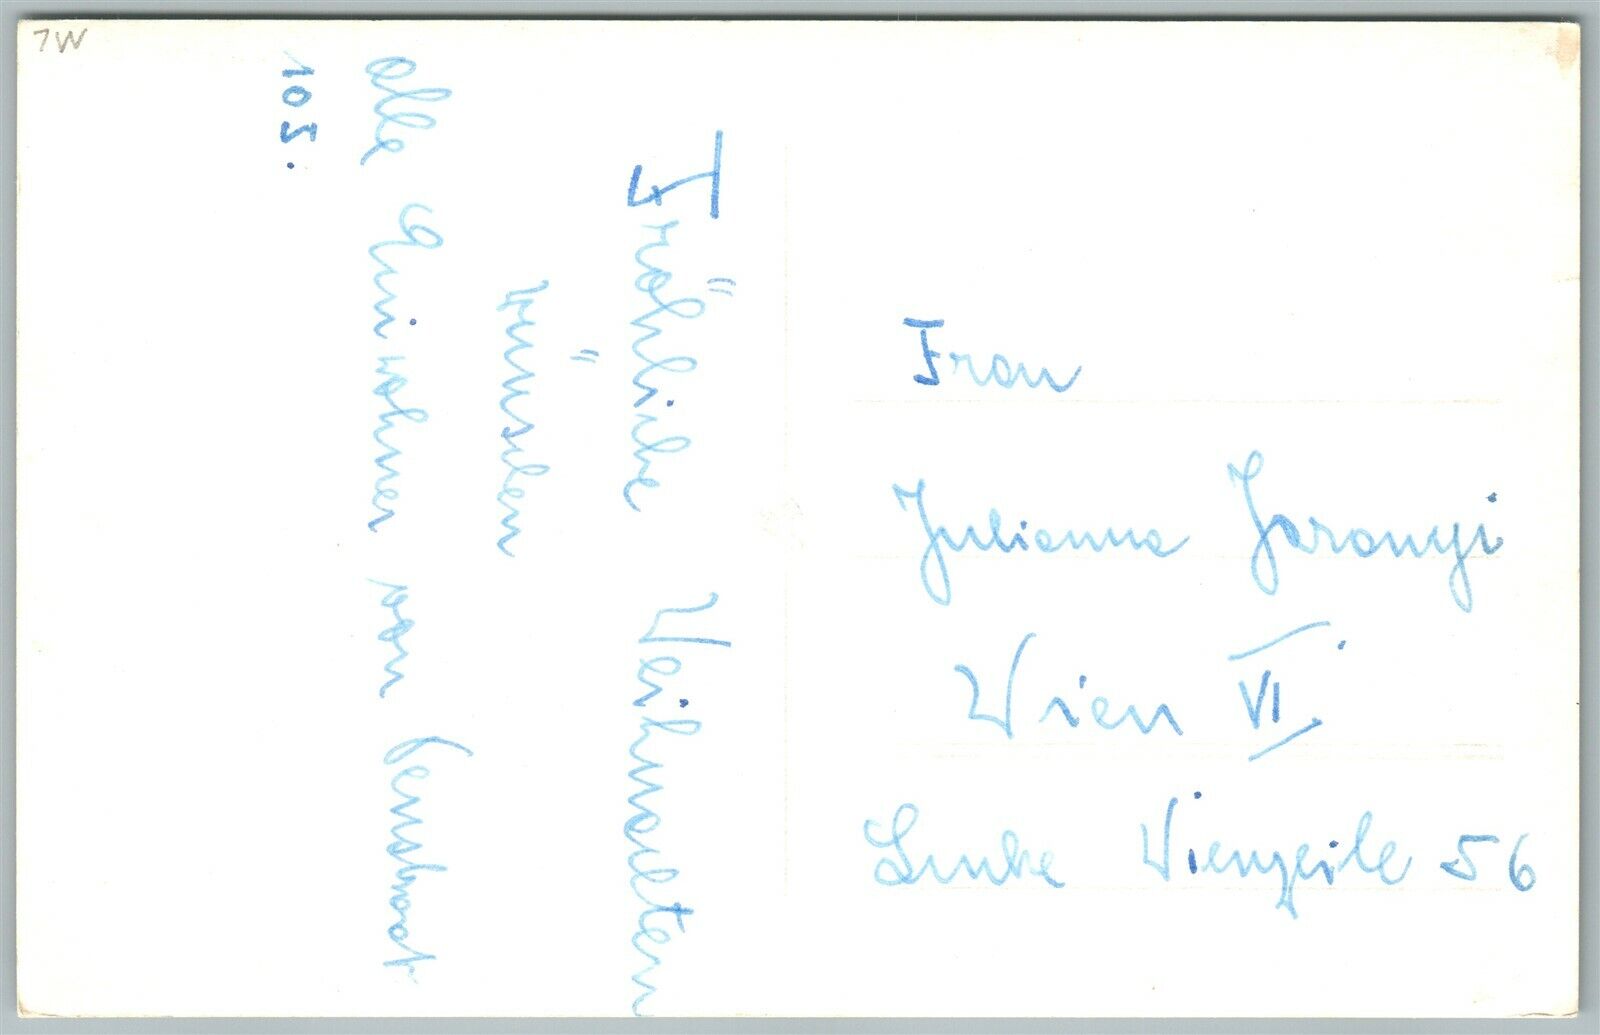 7W
Fröhliche Weihnachten
wünschen
alle Einwohner von
10 S.
Frau
Julianna Jaranyi
Wien VI.
Linke Wienzeile 56